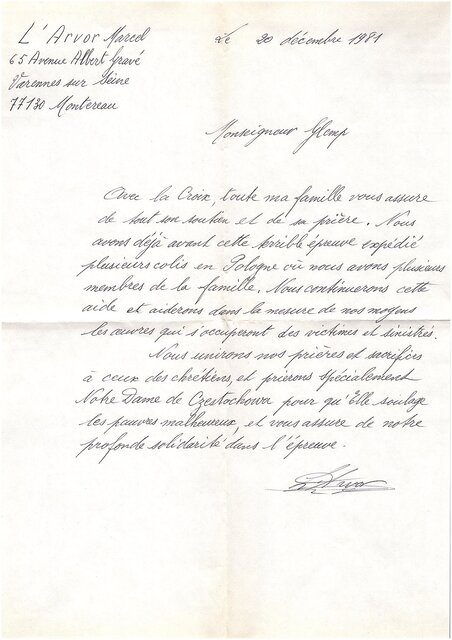 L'Arvor Marcel
65 Avenue Albert Gravé
Varennes sur Seine
77130 Montereau
Le 20 décembre 1981
Monseigneur Glemp
Avec la Croix, toute ma famille vous assure
de tout son soutien et de sa prière. Nous
avons déjà avant cette terrible épreuve expédié
plusieurs colis en Pologne où nous avons plusieurs
membres de la famille. Nous continuerons cette
aide et aiderons dans la mesure de nos moyens
les œuvres qui s'occuperont des victimes et sinistrés.
Nous unirons nos prières et sacrifices
à ceux des chrétiens, et prierons spécialement
Notre Dame de Częstochowa pour qu'Elle soulage
les pauvres malheureux, et vous assure de notre
profonde solidarité dans l'épreuve.